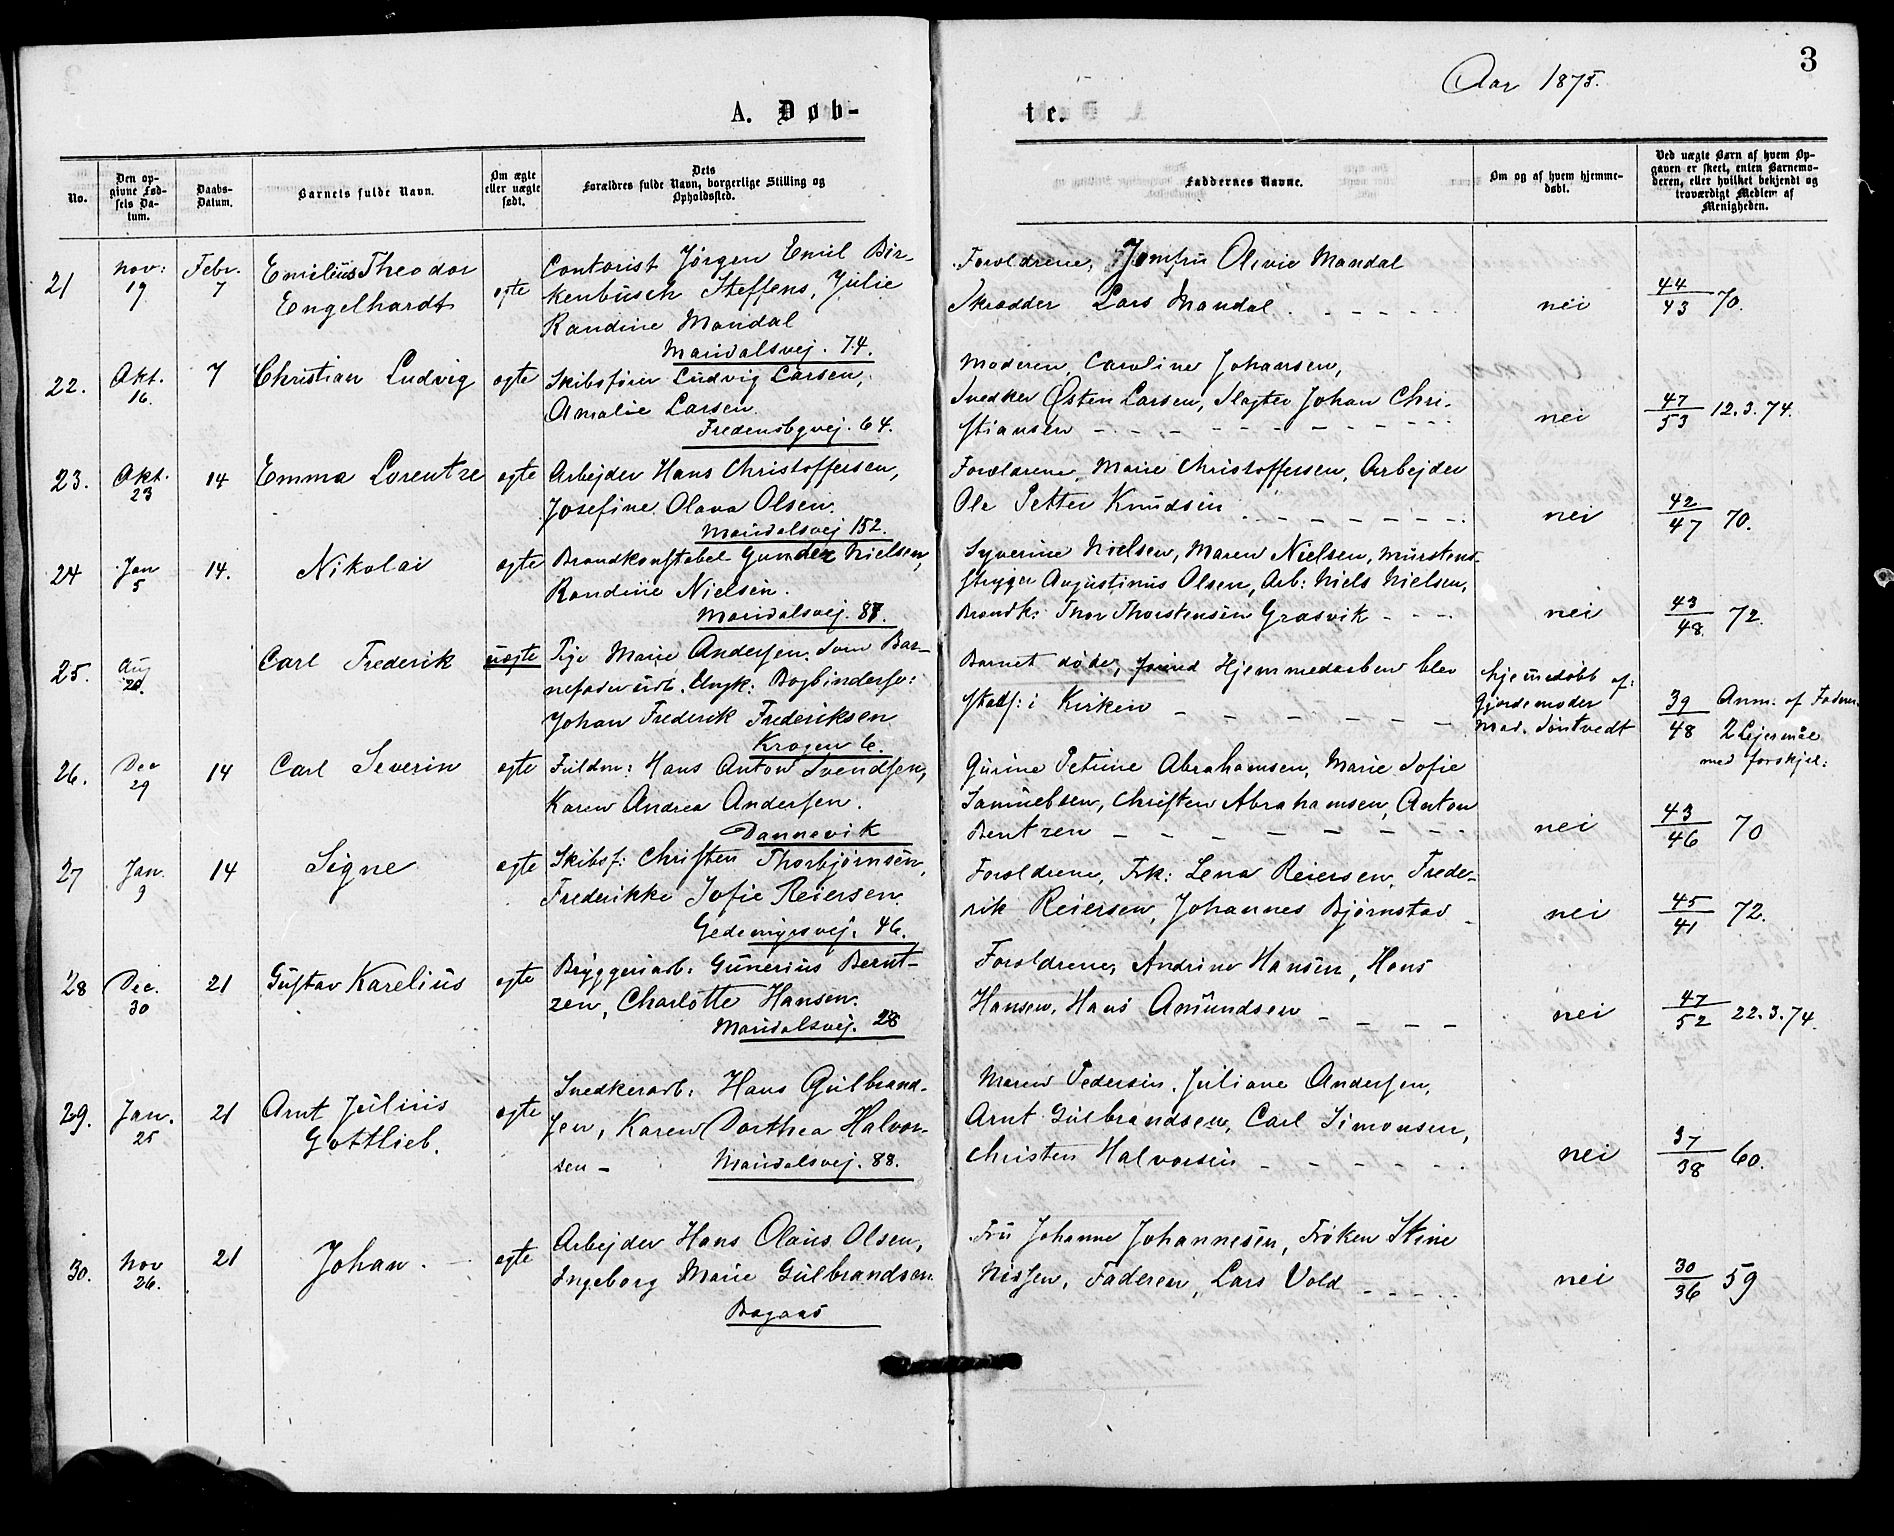 3
Aar 1875.
A. Døb-
te.
No.
Den op-
givne Fød-
sels Da-
tum.
Daabs-
Datum.
Barnets fulde Navn.
Om ægte
eller uægte
født.
Dets
Forældres fulde Navn, borgerlige Stilling og
Opholdssted.
Faddernes Navne.
Om og af hvem hjemme-
døbt.
Ved uægte Barn af hvem Op-
gaven er skeet, enten Barnemo-
deren, eller hvilket bekjendt og
troværdigt Medlem af
Menigheden.
21
Nov:
19
Febr.
7
Emilius Theodor
Engelhardt
ægte
Contorist Jørgen Emil Bir-
kenbusch Steffens, Julie
Randine Mandal
Maridalsvej. 74.
Forældrene, Jomfru Olivie Mandal
Skrædder Lars Mandal
nei
44
43 70.
22.
Okt.
16.
7
Christian Ludvig
ægte
Skibsfører Ludvig Larsen,
Amalie Larsen.
Fredensbgvej. 64.
Moderen, Caroline Johansen,
Snedker Østen Larsen, Slagter Johan Chri-
stiansen
nei
47
53 12.3.74.
23.
Okt.
23
14
Emma Lorentze
ægte
Arbejder Hans Christoffersen,
Josefine Olava Olsen.
Maridalsvej 152.
Forældrene, Marie Christoffersen, Arbejder
Ole Petter Knudsen
nei
42
47 70.
24
Jan
5
14.
Nikolai
ægte
Brandkonstabel Gunder Nielsen,
Randine Nielsen.
Maridalsvej. 87.
Syverine Nielsen, Maren Nielsen, Murstens-
stryger Augustinus Olsen, Arb: Niels Nielsen,
Brandk: Thor Thorstensen Grasvik
nei
43
48 72.
25.
Aug
20.
Carl Frederik
uægte
Pige Marie Andersen. Som Bar-
nefader udl. Ungk: Bogbindersv:
Johan Frederik Frederiksen
Krogen 6.
Barnet døde, Hjemmedaaben blev
stadf: i Kirken
hjemmedøbt af:
Gjordemoder
Mad. Søntvedt
39
48 Anm: af Faderen.
2 Lejermål
med forskjel:
26.
Dec
29
14
Carl Severin
ægte
Fuldm: Hans Anton Svendsen,
Karen Andrea Andersen.
Dannevik
Gurine Petrine Abrahamsen, Marie Sofie
Samuelsen, Christen Abrahamsen, Anton
Bentzen
nei
43
46 70
27
Jan.
9
14
Signe
ægte
Skibsf: Christen Thorbjørnsen,
Frederikke Sofie Reiersen.
Gedemyrsvej. 46.
Forældrene, Frk: Lena Reiersen, Frede-
rik Reiersen, Johannes Bjørnstad
nei
45
41 72.
28
Dec.
30
21
Gustav Karelius
ægte
Bryggeriarb: Gunerius Bernt-
zen, Charlotte Hansen.
Maridalsvej. 28
Forældrene, Andrine Hansen, Hans
Hansen, Hans Amundsen
nei
47
52 22.3.74.
29.
Jan.
25
21
Arnt Julius
Gottlieb.
ægte
Snedkerarb: Hans Gulbrand-
sen, Karen Dorthea Halvor-
sen - Maridalsvej. 88.
Maren Pedersen, Juliane Andersen,
Arnt Gulbrandsen, Carl Simonsen,
Christen Halvorsen
nei
37
38 60.
30.
Nov
26.
21
Johan.
ægte
Arbejder Hans Olaus Olsen,
Ingeborg Marie Gulbrandsen.
Bagaas
Fru Johanne Johannesen, Frøken Stine
Nissen, Faderen, Lars Vold
nei
30
36 59